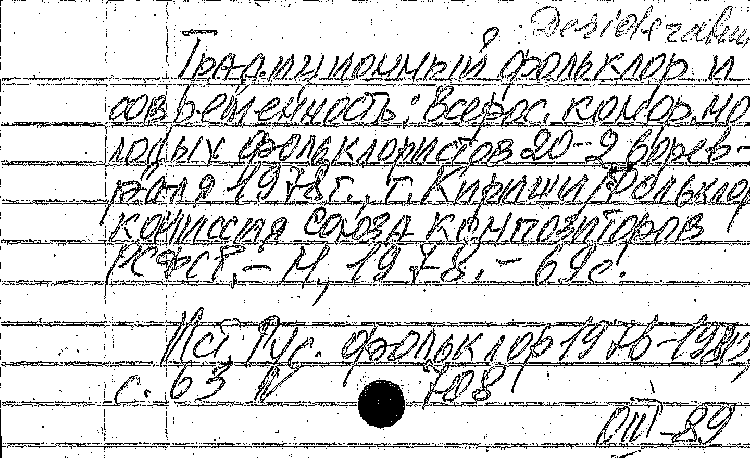 Desideratum
Традиционный фольклор и
современность: Всерос. конф. мо-
лодых фольклористов 20-26 фев-
раля 1978 г., г. Кириши / Фольклор.
комиссия Союза композиторов
РСФСР. - М., 1978. - 69 с.
Ист. Рус. фольклор 1976-1980,
с. 63 № 708
ОIII-89